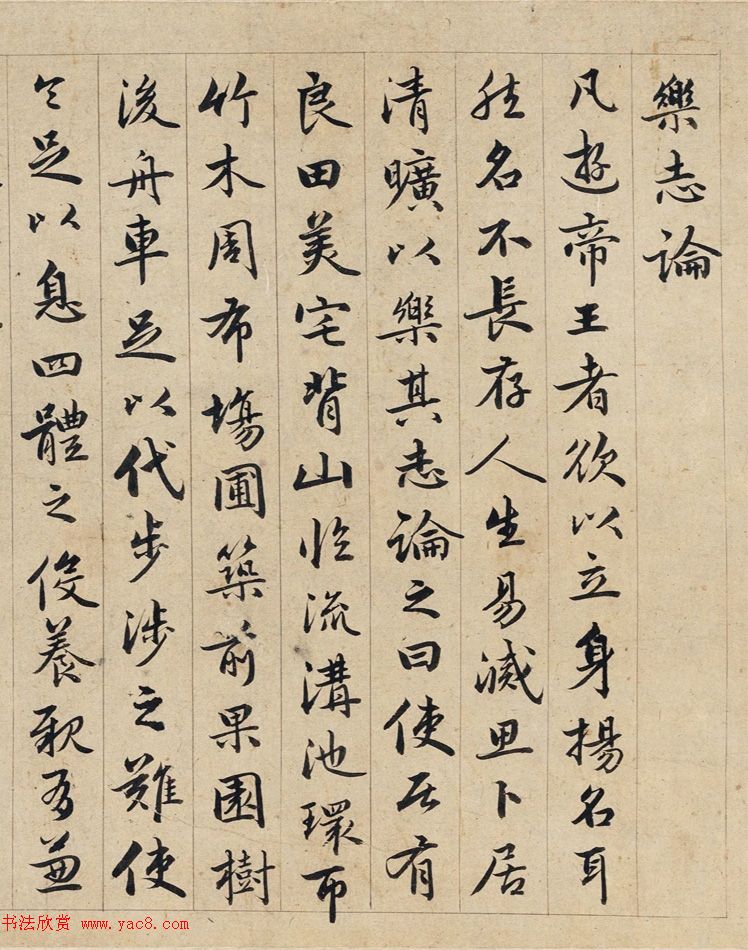 樂志論
凡遊帝王者欲以立身揚名耳
然名不長存人生易滅思卜居
清曠以樂其志論之曰使居有
良田美宅背山臨流溝池環帀
竹木周布場圃築前果園樹
後舟車足以代步涉之難使
令足以息四體之役養親有兼
书法欣赏 www.yac8.com